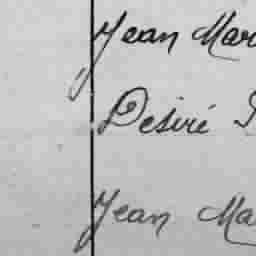 Jean Mar
Desiré
Jean Ma